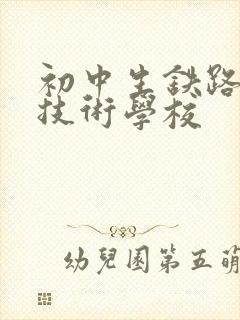 初中生鉄路
技術學校
幼兒園第五萌